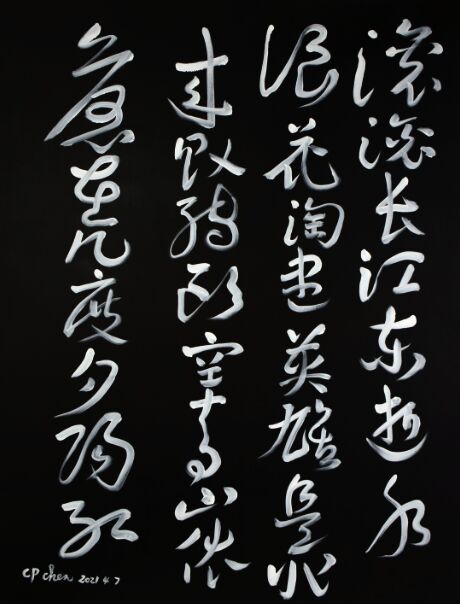 滚滚长江东逝水
浪花淘尽英雄是非
成败转头空青山依
旧在几度夕阳红
CP chen 2021 4 7